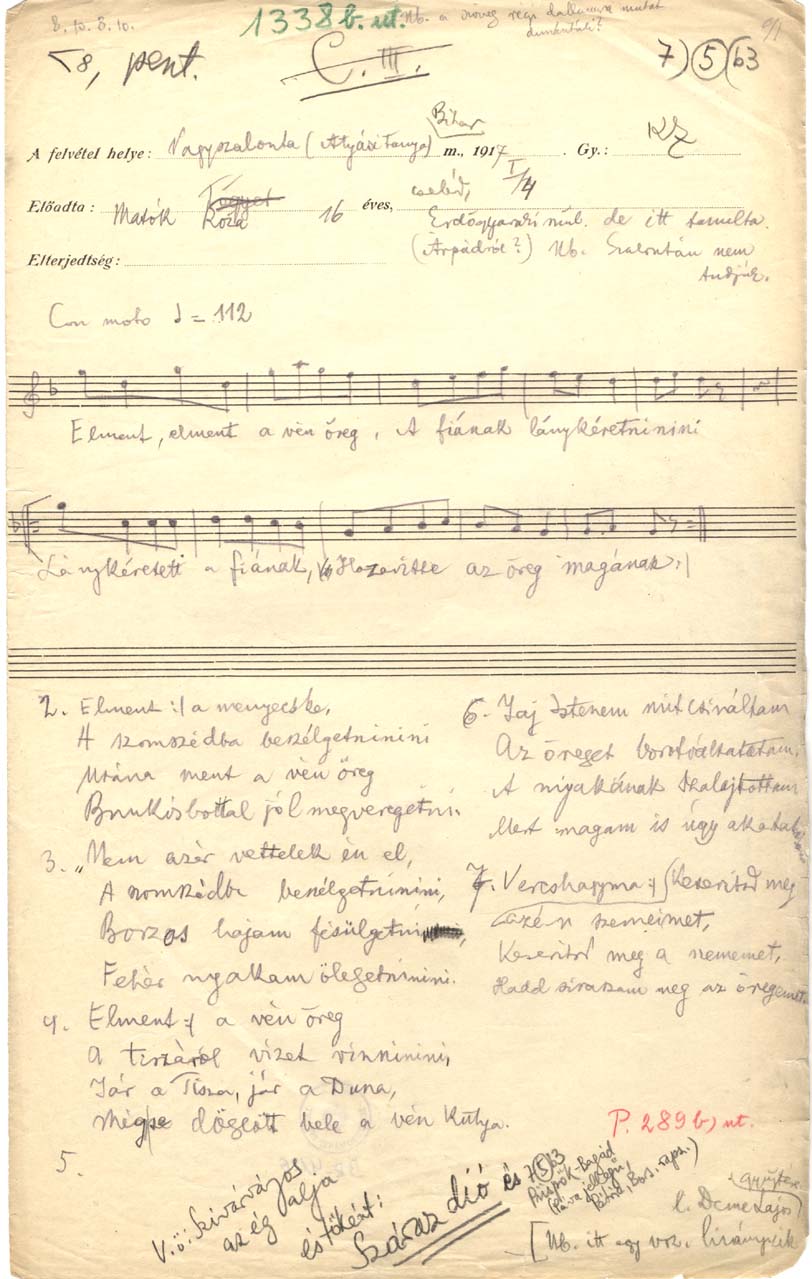 8. 10. 8. 10.
1338 b. ut.
Nb. a szöveg régi dallamra mutat
dunántúli?
8, pent.
C. III.
7) 5 (b3
A felvétel helye: Nagyszalonta (Atyási tanya) Bihar m., 1917 I/4 Gy.: KZ
Előadta: Matók Róza 16 éves, cseléd,
Erdőgyaraki szül. de itt tanulta
Elterjedtség: (Árpádról?) Nb. Szalontán nem
tudják.
Con moto ♩ = 112
Elment, elment a vén öreg, A fiának lánykéretninini
Lánykéretett a fiának, Hazavitte az öreg magának :|
2. Elment :| a menyecske,
A szomszédba beszélgetninini
Utána ment a vén öreg
Bunkósbottal jól megveregetni.
3. „Nem azér vettelek én el,
A szomszédba beszélgetninini,
Borzos hajam fésülgetni
Fehér nyakam ölegetninini.
4. Elment :| a vén öreg
A tiszáról vizet vinninini,
Jár a Tisza, jár a Duna,
Mégse döglött bele a vén kutya.
5.
6. Jaj Istenem mit csináltam
Az öreget borotváltattam
A nyakának szalajtottam
Mert magam is úgy akartam
7. Vereshagyma :| Keserítsd meg
azén szemeimet,
Keserítsd meg a szememet,
Hadd sirassam meg az öregemet
P. 289 b) ut.
V.ö. Szivárványos
az ég alja
és tőként:
Száraz dió és 7 5 b3
Püspök-Bogád
l. Deme Lajos
[Nb. itt egy vsz. hiányzik